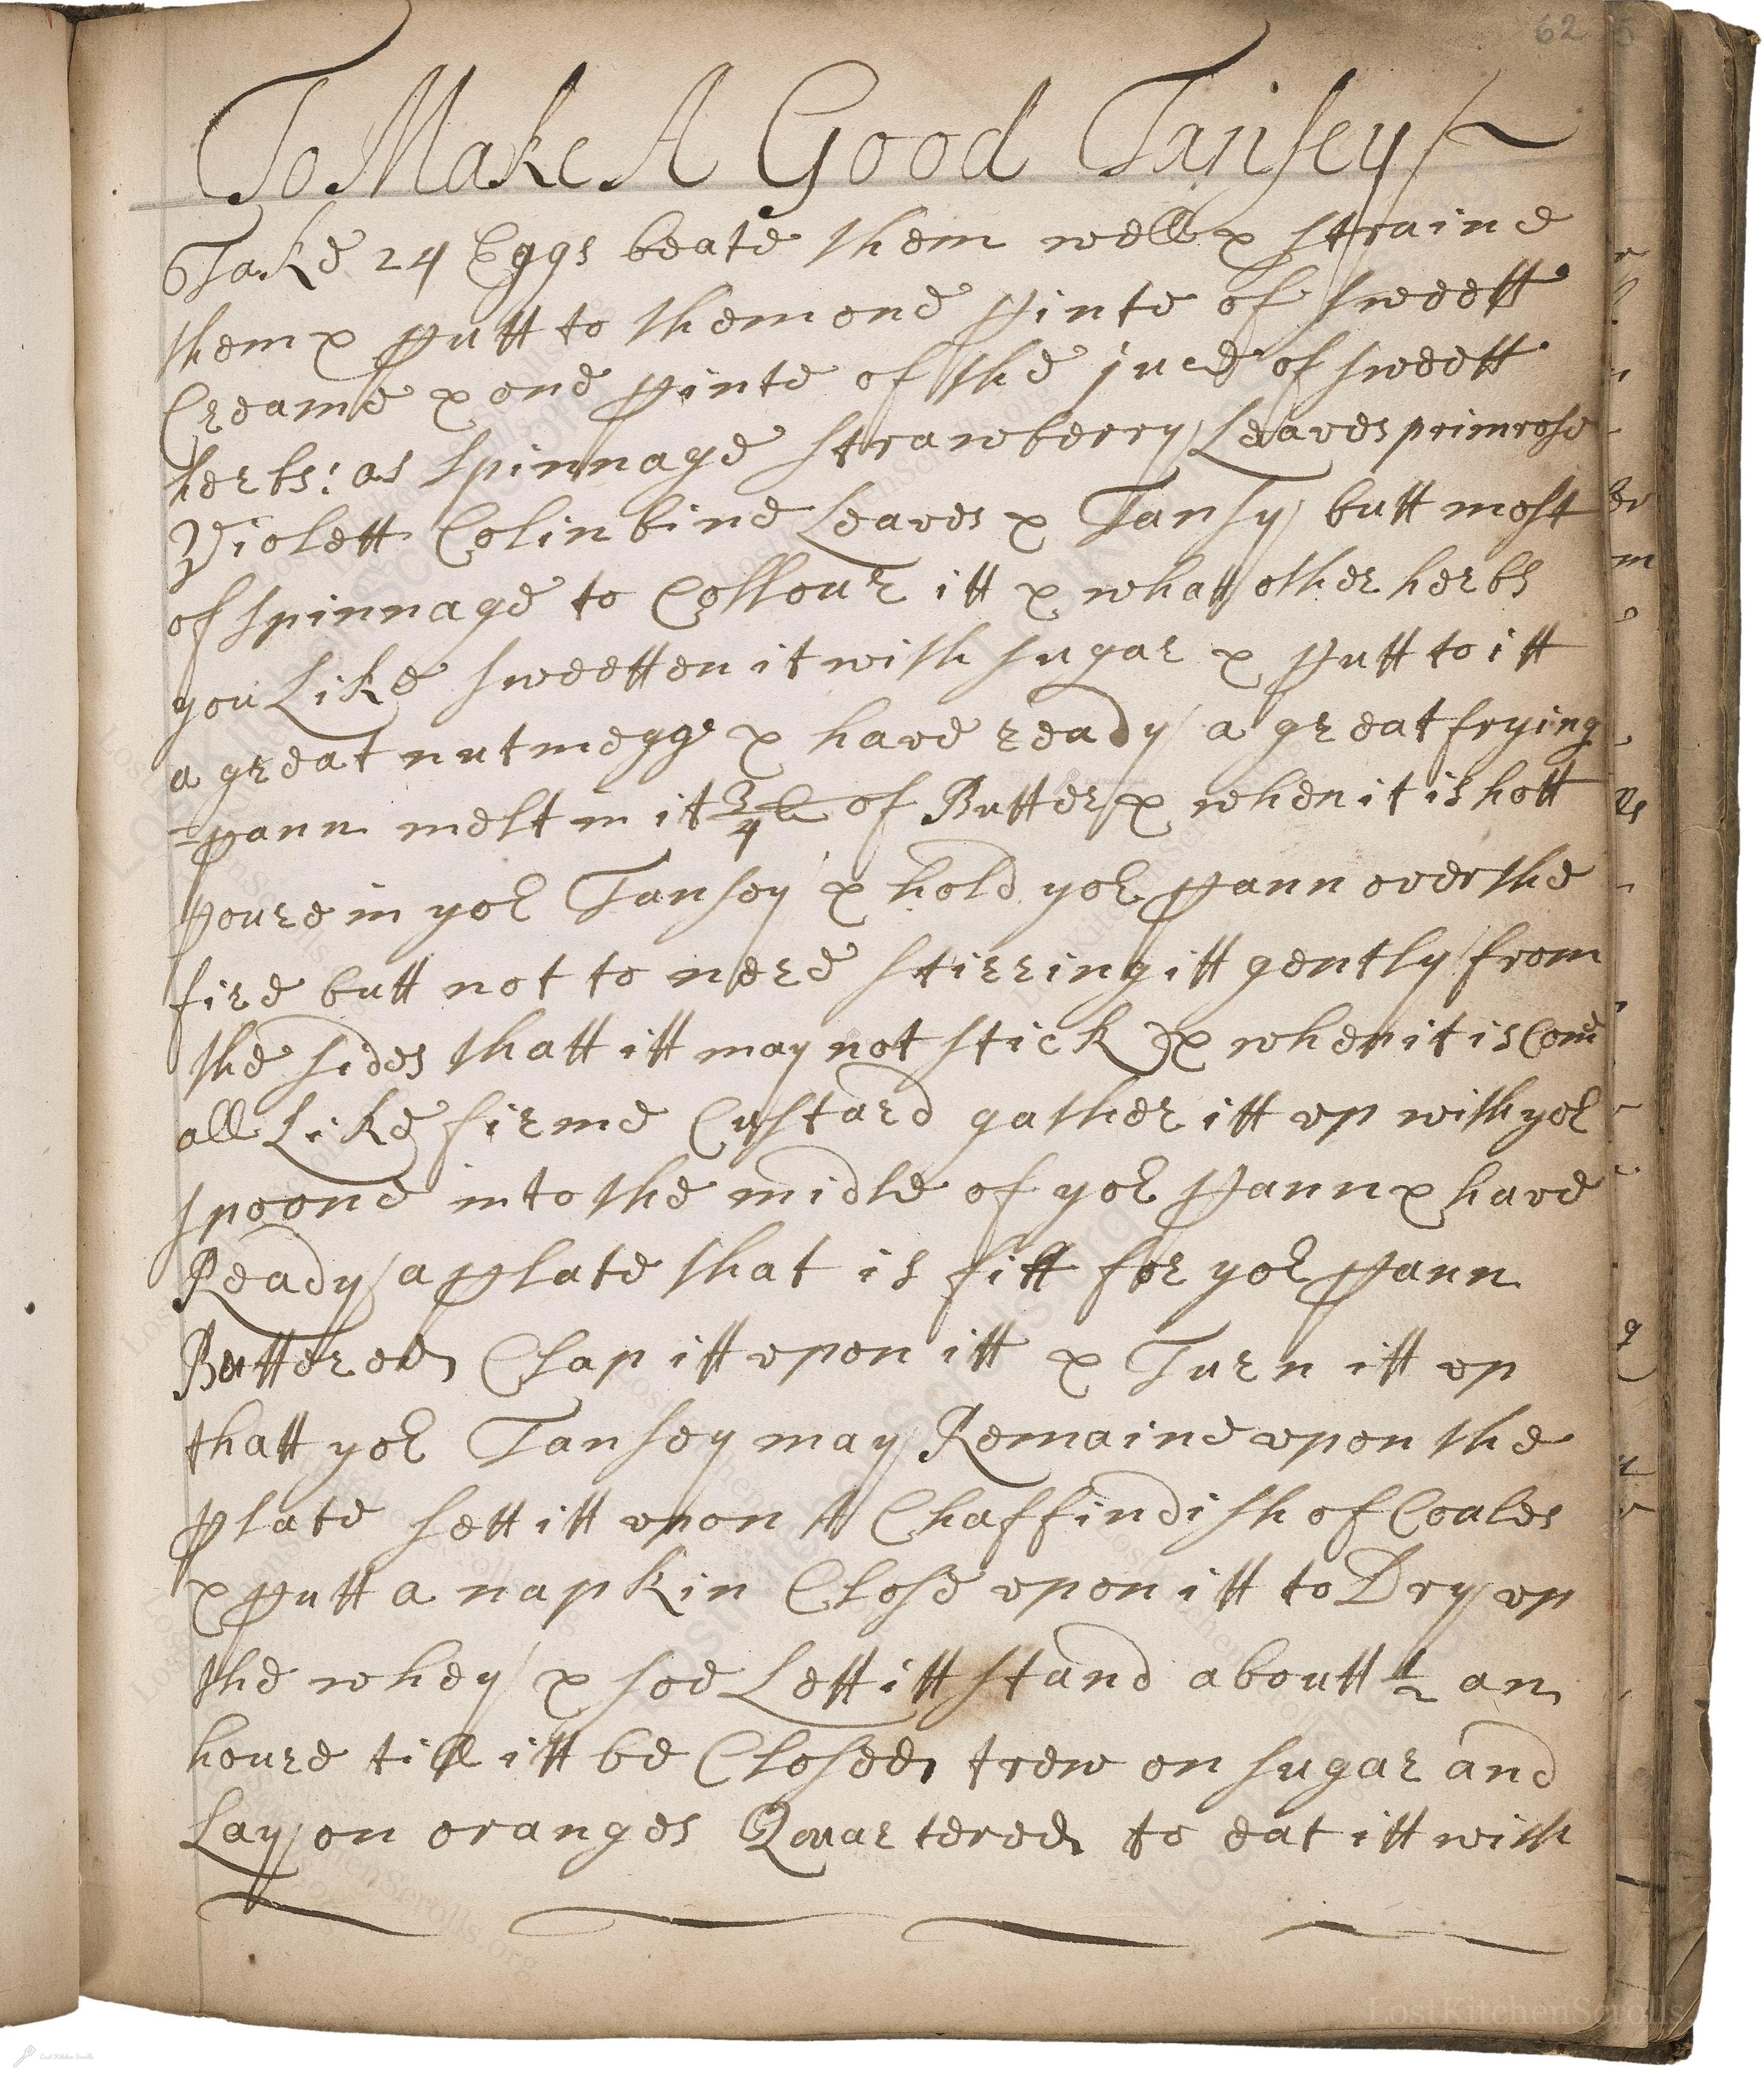 62 5
To Make A Good Tansey
Take 24 Eggs beate them well & straine
them & putt to them one pinte of sweett
Creame & one pinte of the juce of sweett
herbs: as spinnage strawberry Leaves primrose
Violett Colinbine Leaves & Tansy butt most
of spinnage to Collour itt & whatt other herbs
you Like sweetten it with sugar & putt to itt
a great nutmegg & have ready a great frying
pann melt in it 3/4 lb of Butter & when it is hott
poure in yor Tansey & hold yor pann over the
fire butt not to nere stirring itt gently from
the sides thatt itt may not stick & when it is Come
all Like firme Custard gather itt vp with yor
spoone into the midle of yor pann & have
Ready a plate that is fitt for yor pann
Buttered Clap itt vpon itt & Turn itt vp
thatt yor Tansey may Remaine vpon the
plate sett itt vpon A Chaffindish of Coales
& putt a napkin Close vpon itt to Dry vp
the whey & soe Lett itt stand aboutt 1/2 an
houre till itt be Closed strew on sugar and
Lay on oranges Quartered to eat itt with
LostKitchenScrolls
Lost Kitchen Scrolls